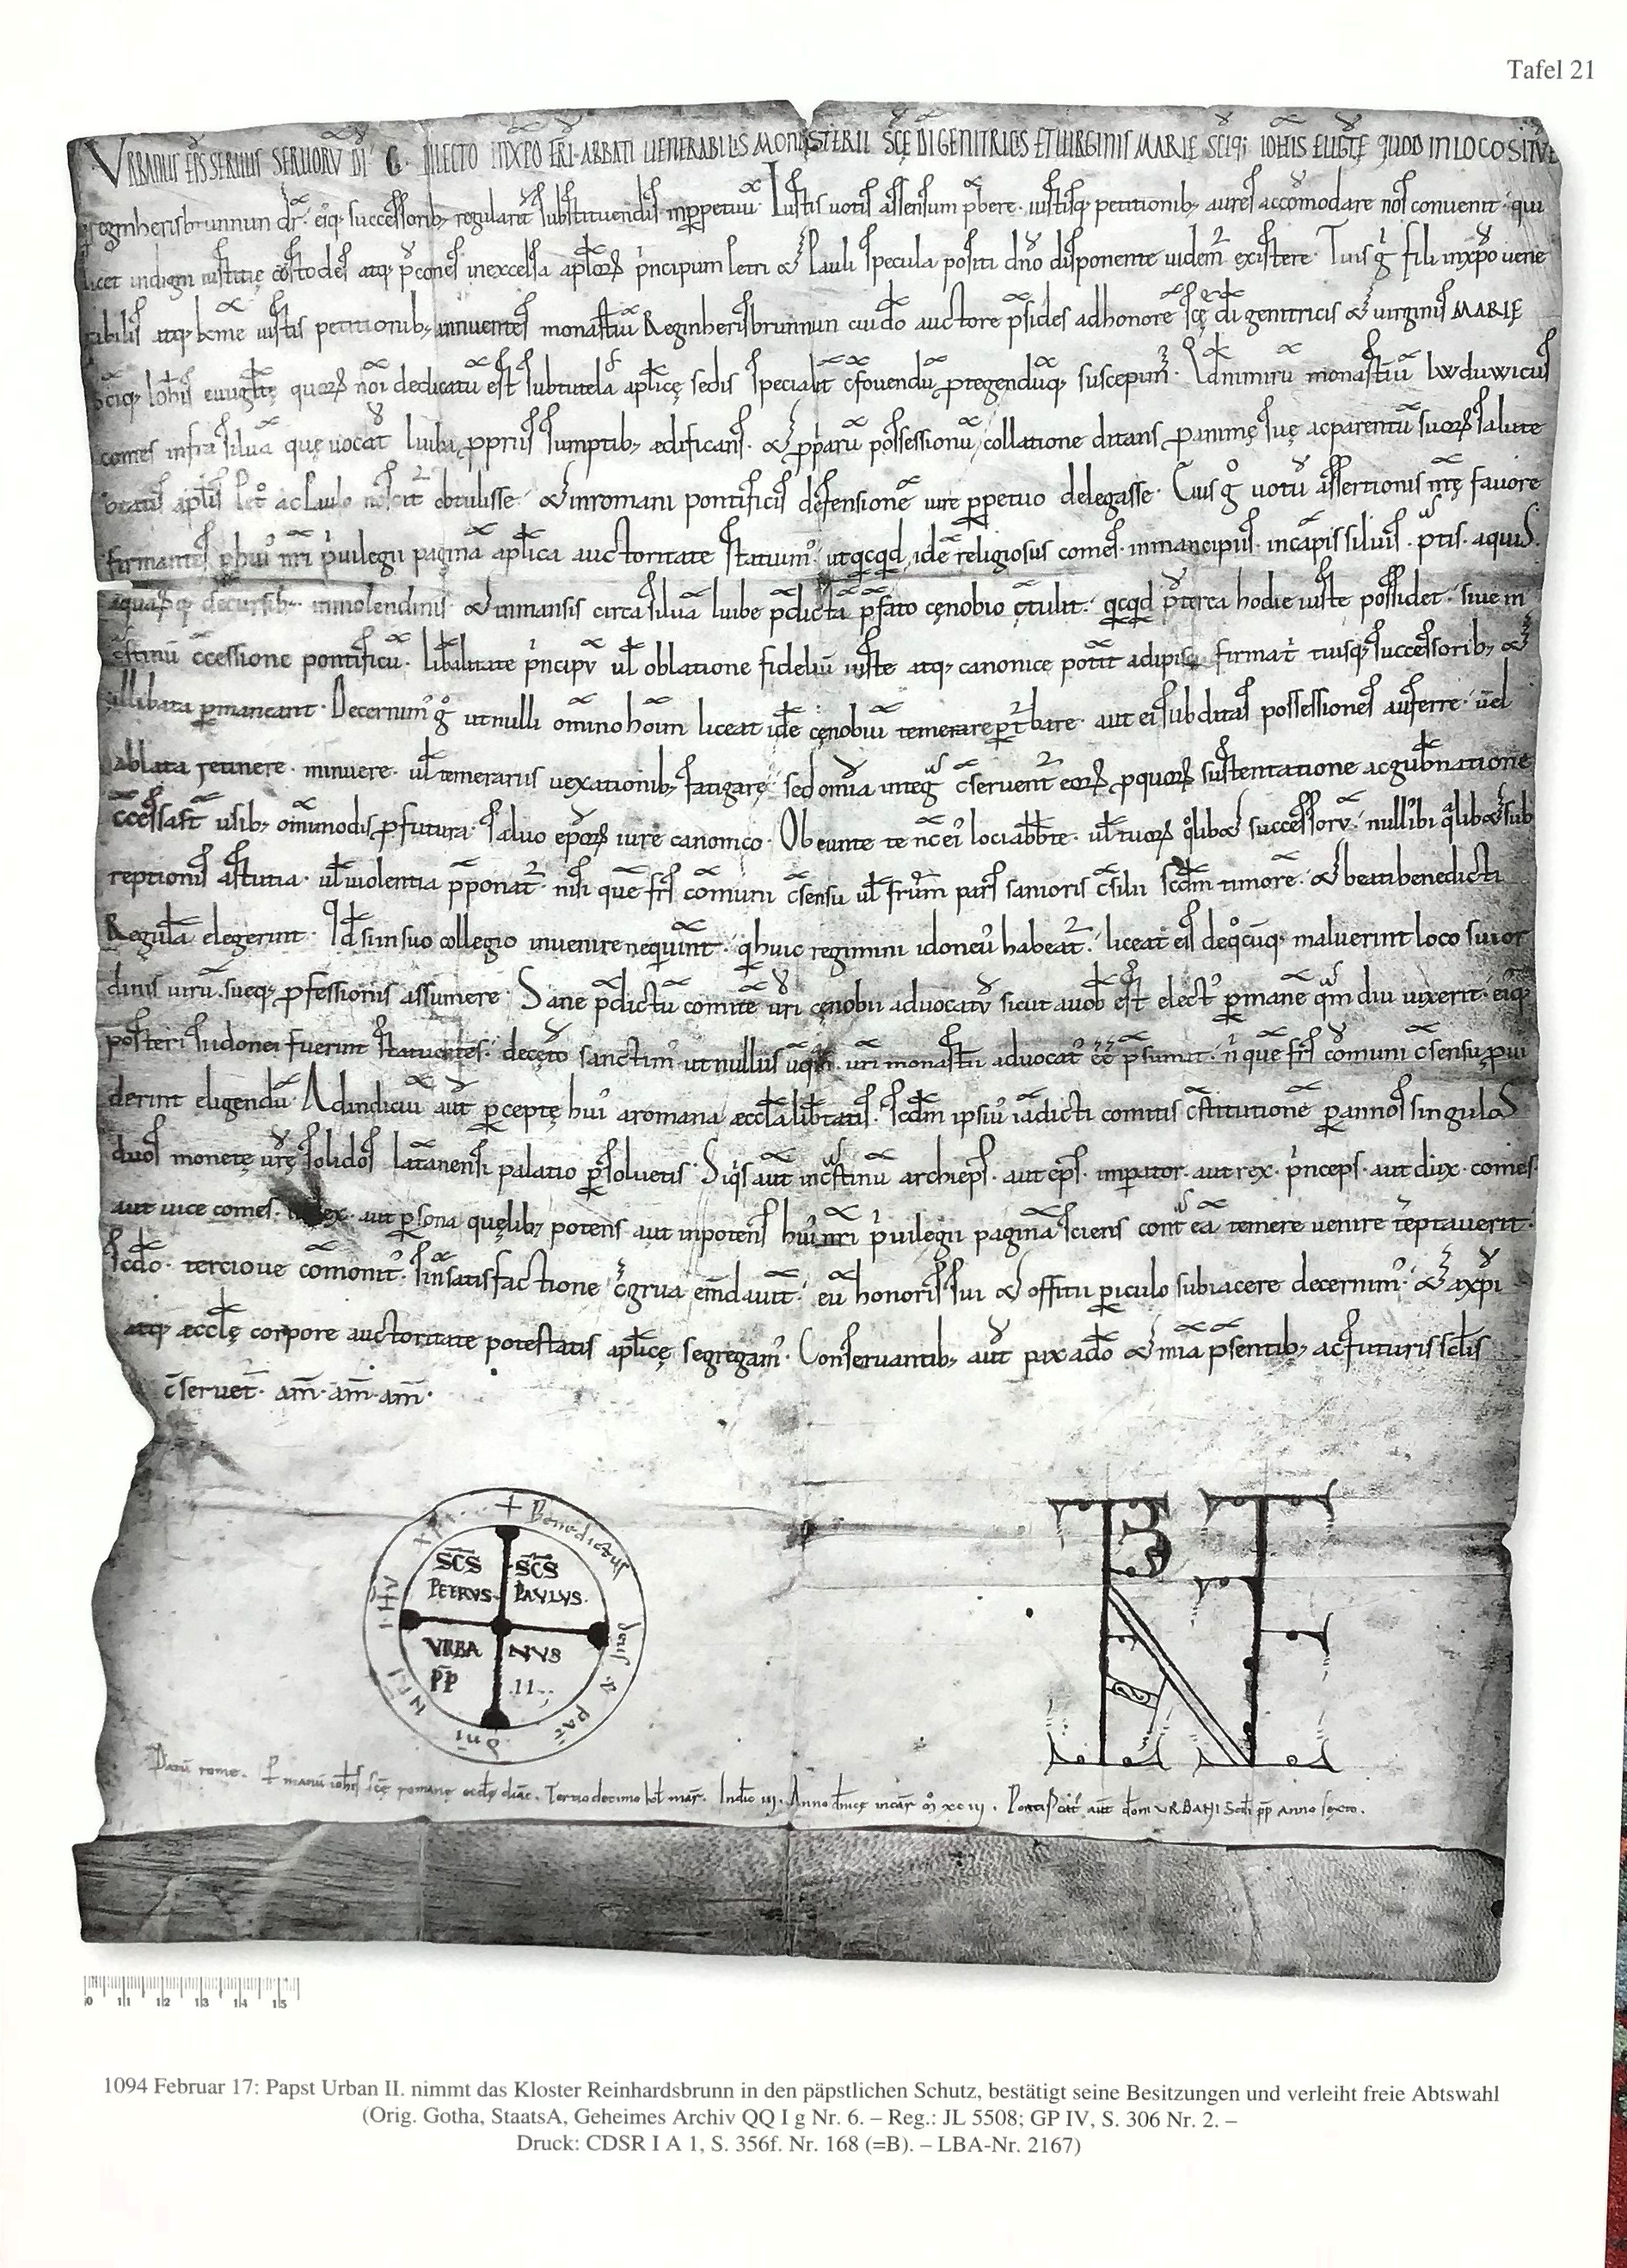 Tafel 21
VRBANUS EPS SERUUS SERUORV DI G. DILECTO INXPO FRI ABBATI UENERABILIS MONASTERII SCE DI GENITRICIS ET UIRGINIS MARIE SCIQ; IOHIS EUGTE QUOD IN LOCO SITVE
reginherisbrunnun dr. eiq; successorib; regularit substituendis inpperpetuu. Iustis uotis assensum pbere. iustisq; petitionib; aures accomodare nos conuenit. qui
licet indigni iustitie costodes atq; pcones inexcelsa aplorum pncipum Petri & Pauli specula positi dno disponente uidemr existere. Tuis g fili inxpo uene
rabilis atq; kme iustis petitionib; annuentes monastiu Reginherisbrunnun cui do auctore psides adhonore sce di genitricis & uirginis MARIE
Sciq; Iohis euuglte quorum noi dedicatu est subtutela aplice sedis specialit cfouendu ptegenduq; suscepim. Qd nimiru monastiu Lvvduvvicus
comes infra silua que uocat Luiba pprius sumptib; aedificans. & ppparu possessionu collatione ditans p anime sue ac parentu suorum salute
beatis aplis Pet ac Paulo noscit obtulisse. & inromani pontificis defensione iure ppetuo delegasse. Cuis g uotu assertionis nre fauore
firmantes p hui nri puilegii pagina aplica auctoritate statuim. ut qcqd ide religiosus comes. inmancipiis. incapis siluis. ptis. aquis.
aquarumq; decursib; inmolendinis. & inmansis circa silua Luibe pdicta pfato cenobio ctulit. qcqd pterea hodie iuste possidet. siue in
cstinu ccessione pontificu. libalitate pncipv ul oblatione fideliu iuste atq; canonice potit adipisci firmat tuisq; successorib; &
illibata pmaneant. Decernim g ut nulli omino hoim liceat ide cenobiu temerare ptbare. aut ei subditas possessiones auferre. uel
ablata retinere. minuere. ul temerariis uexationib; fatigare. sed omia integ cseruent eorum p quorum sustentatione ac gubnatione
ccessa st usib; omimodis pfutura. saluo eporum iure canonico. Obeunte te nc ei loci abbte. ul tuorum qlib& successorv. nullibi qlib& sub
reptionis astutia. ul uiolentia pponat. nisi que frs comuni csensu ul frum pars sanioris csilii scdm timore. & beati benedicti
Regula elegerint. Qd si in suo collegio inuenire nequiint. q huic regimini idoneu habeat. liceat eis de qcuq; maluerint loco sui or
dinis uiru. sueq; pfessionis assumere. Sane pdictu comite uri cenobii aduocatv sicut auob est elect pmane qm diu uixerit. eiq;
posteri si idonei fuerint statuentes. deceto sanctim ut nullus uq in uri monastii aduocat ee psumat. n que frs comuni csensu pui
derint eligendu. Ad indiciu aut pcepte hui aromana aeccla libtatis. scdm ipsiu iadicti comitis cstitutione p annos singulos
duos monete ure solidos latanensi palatio psoluetis. Siqs aut incstinu archieps. aut eps. impator. aut rex. pnceps. aut dux. comes.
aut uice comes. iudex. aut psona quelib; potens aut inpotens hui nri puilegii pagina sciens cont ea temere uenire teptauerit.
Scdo. tercioue comonit. si n satisfactione cgrua emdauit. eu honoris sui & offitii piculo subiacere decernim. & axpi
atq; aeccle corpore auctoritate potestatis aplice segregam. Conseruantib; aut pax ado & mia psentib; ac futuris sclis
cseruet. am. am. am.
+ Benedictus deus & pat dni nri IHV XPI
SCS PETRVS. SCS PAVLVS.
VRBA NVS
PP .II.
Datu rome. P manu iohis sce romane eccle diac. Tertio decimo kl mar. Indic III. Anno dnice incar M XC III. Pontificat aut dom VRBANI Scdi pp Anno sexto.
0 1 2 3 4 5
1094 Februar 17: Papst Urban II. nimmt das Kloster Reinhardsbrunn in den päpstlichen Schutz, bestätigt seine Besitzungen und verleiht freie Abtswahl
(Orig. Gotha, StaatsA, Geheimes Archiv QQ I g Nr. 6. – Reg.: JL 5508; GP IV, S. 306 Nr. 2. –
Druck: CDSR I A 1, S. 356f. Nr. 168 (=B). – LBA-Nr. 2167)